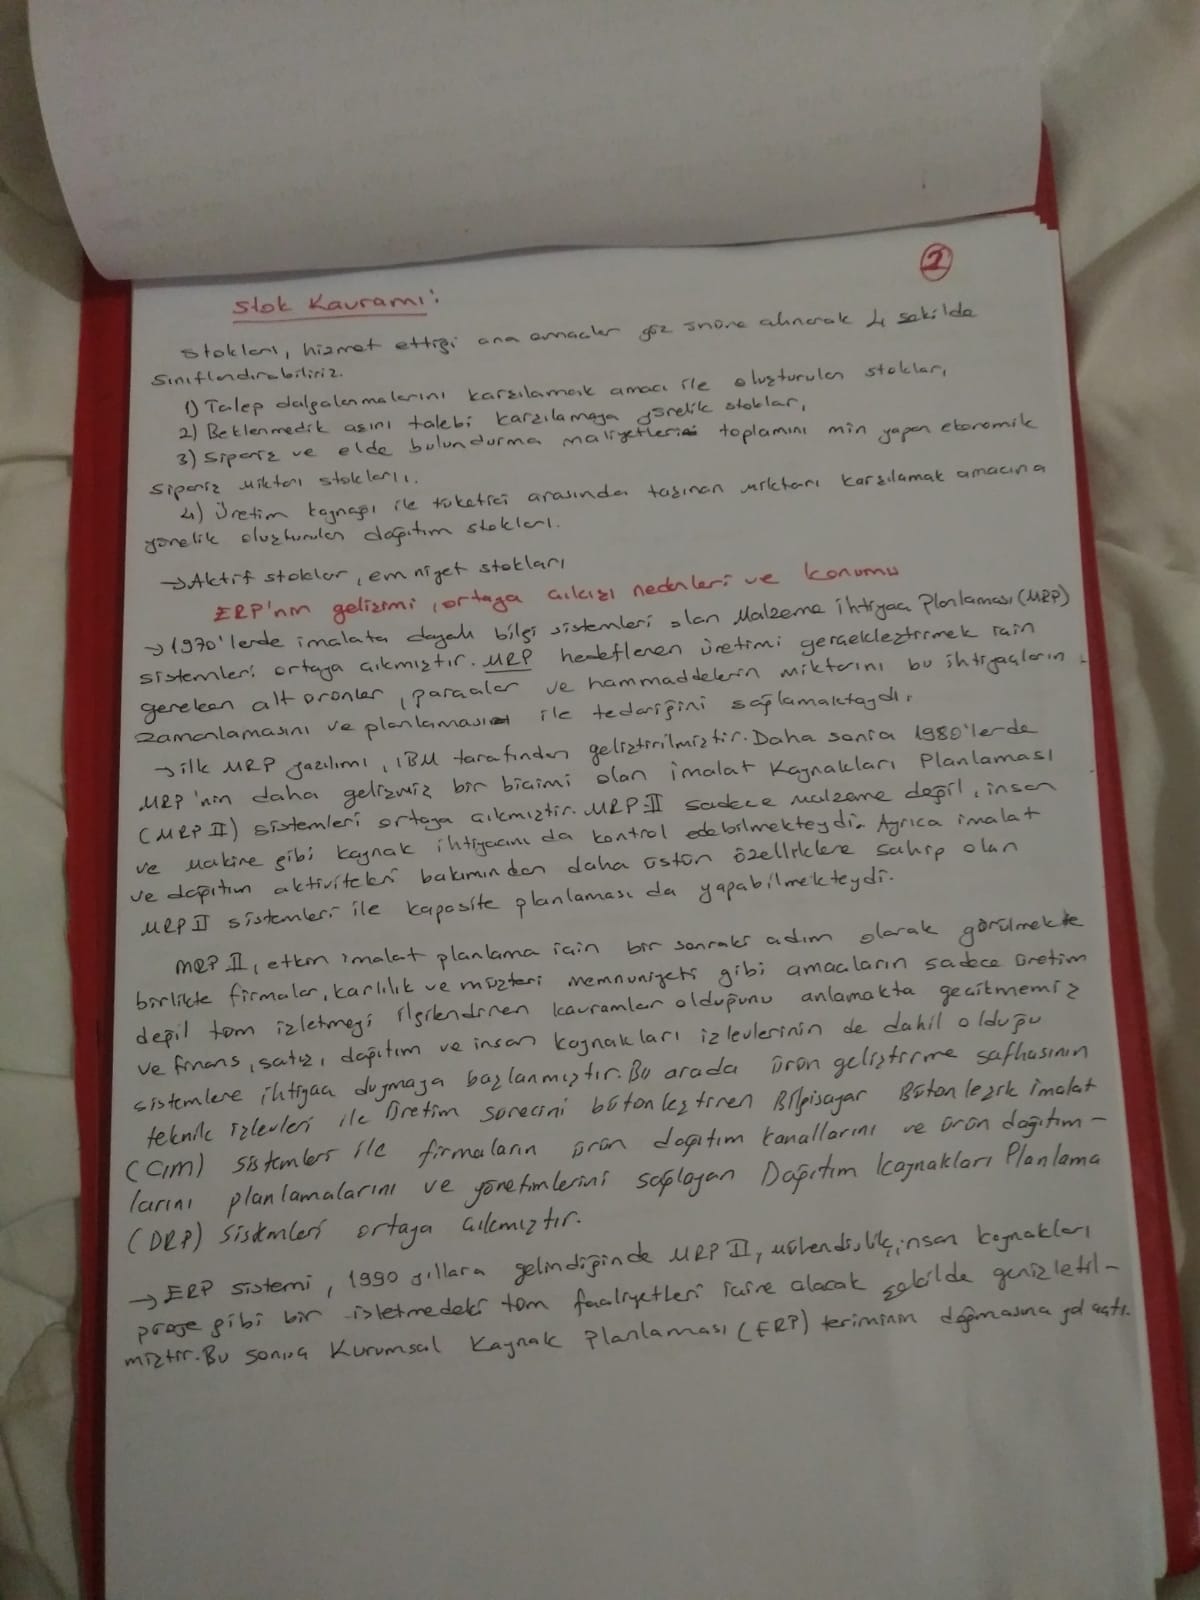 2
Stok Kavramı:
Stokları, hizmet ettiği ana amaçlar göz önüne alınarak 4 şekilde
sınıflandırabiliriz.
1) Talep dalgalanmalarını karşılamak amacı ile oluşturulan stoklar,
2) Beklenmedik aşırı talebi karşılamaya yönelik stoklar,
3) Sipariş ve elde bulundurma maliyetleri toplamını min yapan ekonomik
sipariş miktarı stokları.
4) Üretim kaynağı ile tüketici arasında taşınan miktarı karşılamak amacına
yönelik oluşturulan dağıtım stokları.
→ Aktif stoklar, emniyet stokları
ERP'nin gelişimi, ortaya çıkışı nedenleri ve konumu
→ 1970'lerde imalata dayalı bilgi sistemleri olan Malzeme İhtiyaç Planlaması (MRP)
sistemleri ortaya çıkmıştır. MRP hedeflenen üretimi gerçekleştirmek için
gereken alt ürünler, parçalar ve hammaddelerin miktarını bu ihtiyaçların
zamanlamasını ve planlaması ile tedariğini sağlamaktaydı.
→ ilk MRP yazılımı, IBM tarafından geliştirilmiştir. Daha sonra 1980'lerde
MRP'nin daha gelişmiş bir biçimi olan imalat Kaynakları Planlaması
(MRP II) sistemleri ortaya çıkmıştır. MRP II sadece malzeme değil, insan
ve makine gibi kaynak ihtiyacını da kontrol edebilmekteydi. Ayrıca imalat
ve dağıtım aktiviteleri bakımından daha üstün özelliklere sahip olan
MRP II sistemleri ile kapasite planlaması da yapabilmekteydi.
MRP II, etkin imalat planlama için bir sonraki adım olarak görülmekte
birlikte firmalar, karlılık ve müşteri memnuniyeti gibi amaçların sadece üretim
değil tüm işletmeyi ilgilendiren kavramlar olduğunu anlamakta gecikmemiş
ve finans, satış, dağıtım ve insan kaynakları işlevlerinin de dahil olduğu
sistemlere ihtiyaç duymaya başlanmıştır. Bu arada ürün geliştirme safhasının
teknik işlevleri ile üretim sürecini bütünleştiren Bilgisayar Bütünleşik imalat
(CIM) sistemleri ile firmaların ürün dağıtım kanallarını ve ürün dağıtım-
larını planlamalarını ve yönetimlerini sağlayan Dağıtım Kaynakları Planlama
(DRP) sistemleri ortaya çıkmıştır.
→ ERP sistemi, 1990 yıllara gelindiğinde MRP II, mühendislik, insan kaynakları
proje gibi bir işletmedeki tüm faaliyetleri içine alacak şekilde genişletil-
miştir. Bu sonuç Kurumsal Kaynak Planlaması (ERP) teriminin doğmasına yol açtı.